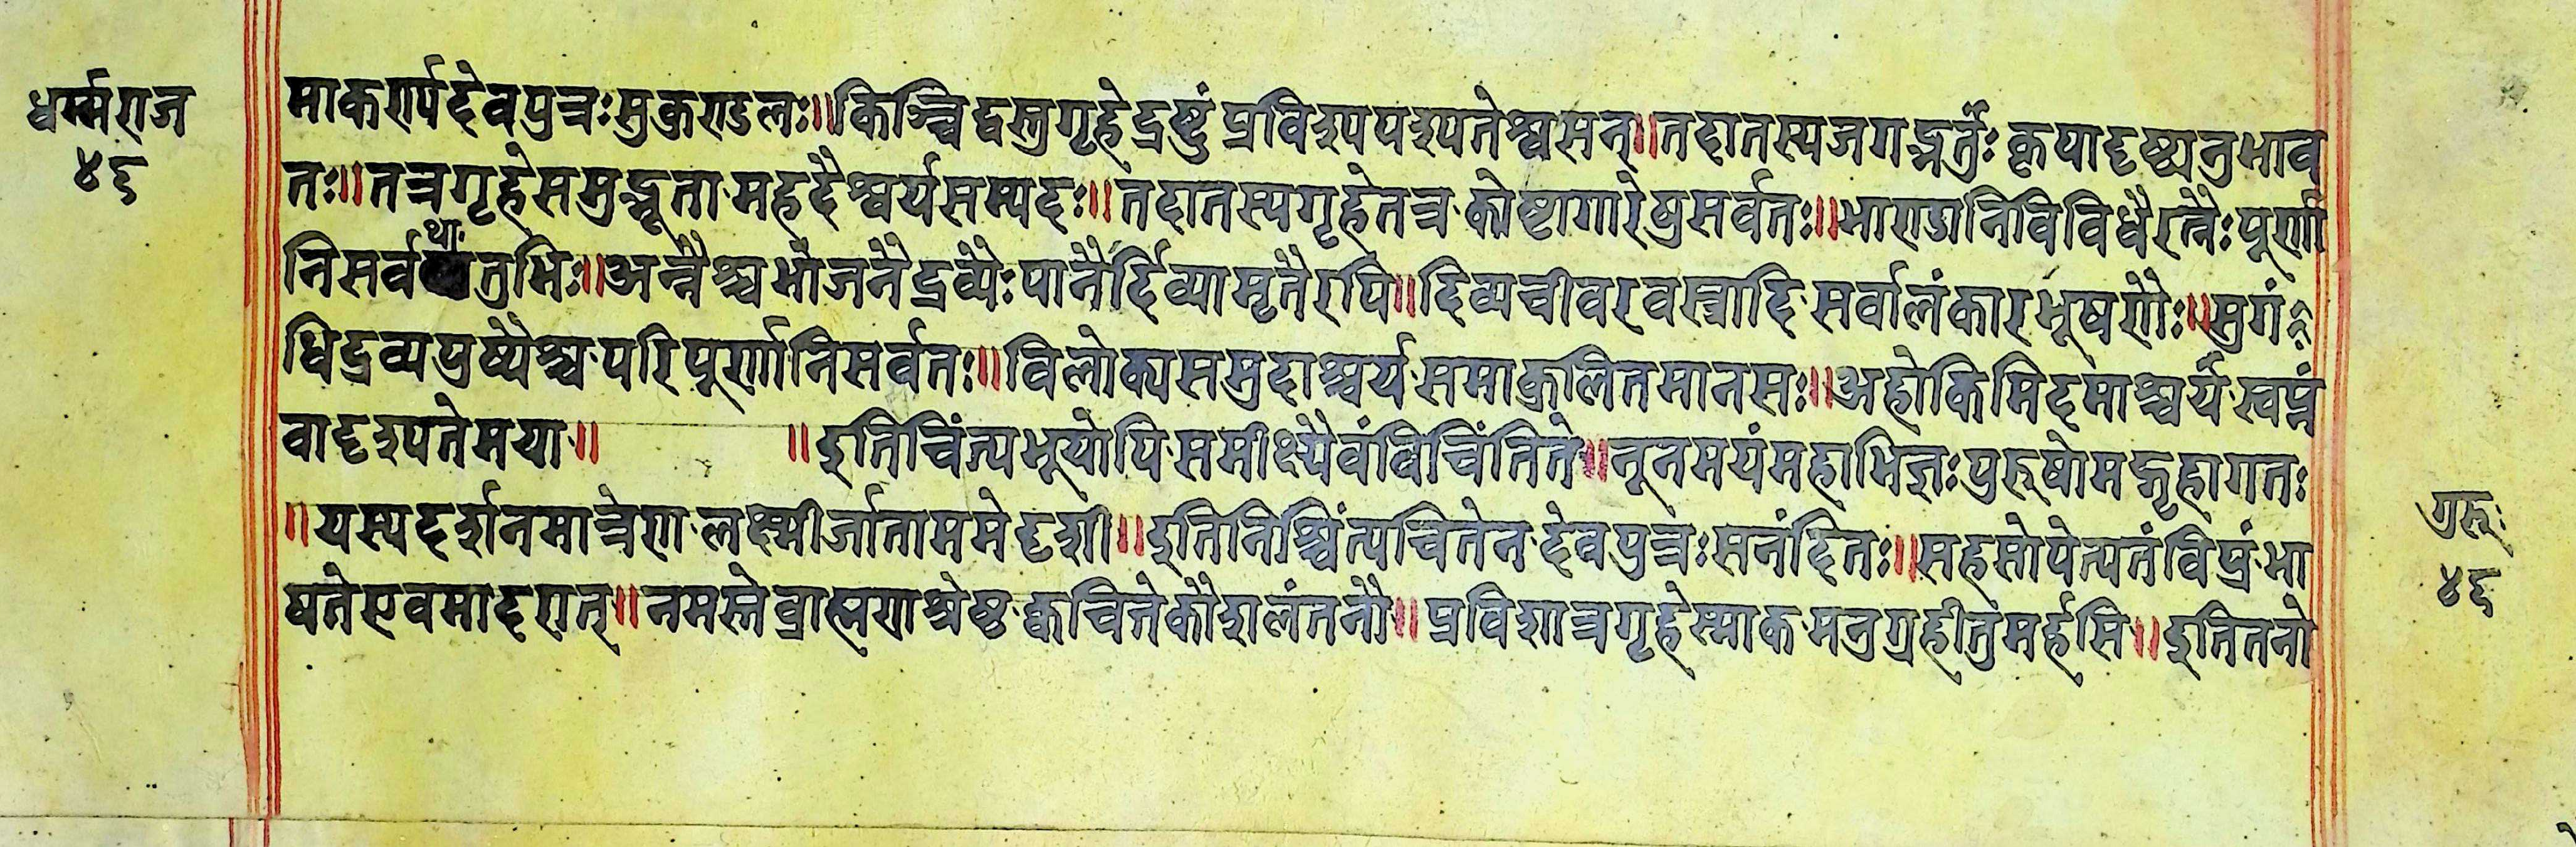 धर्म्मराज
४६
माकर्ण्य देवपुत्रः सुकुण्डलः॥ किञ्चिद्वस्तु गृहे द्रष्टुं प्रविश्य पश्यते श्वसन्॥ तदा तस्य जगद्भर्त्तुः कृपादृष्ट्यनुभाव
तः॥ तत्र गृहे समुद्भूता महदैश्वर्यसम्पदः॥ तदा तस्य गृहे तत्र कोष्टागारेषु सर्वतः॥ भाण्डानि विविधै रत्नैः पूर्णा
नि सर्वधातुभिः॥ अन्नैश्च भोजनैर्द्रव्यैः पानैर्दिव्यामृतैरपि॥ दिव्यचीवरवस्त्रादि सर्वालंकारभूषणैः॥ सुगं
धिद्रव्यपुष्पैश्च परिपूर्णानि सर्वतः॥ विलोक्य समुदाश्चर्य समाकुलितमानसः॥ अहो किमिदमाश्चर्यं स्वप्नं
वा दृश्यते मया॥ ॥ इति चिंत्य भूयोपि समीक्ष्यैवं विचिंतिते॥ नूनमयं महाभिज्ञः पुरुषो मद्गृहागतः
॥ यस्य दर्शनमात्रेण लक्ष्मीर्जाता ममेदृशी॥ इति निश्चिंत्य चितेन देवपुत्रः सनंदितः॥ सहसोपेत्य तं विप्रं भा
षते एवमादरात्॥ नमस्ते ब्राह्मणश्रेष्ठ क्वचित्ते कौशलं तनौ॥ प्रविशात्र गृहेस्माकमनुग्रहीतुमर्हसि॥ इति तनो
गुरुः
४६